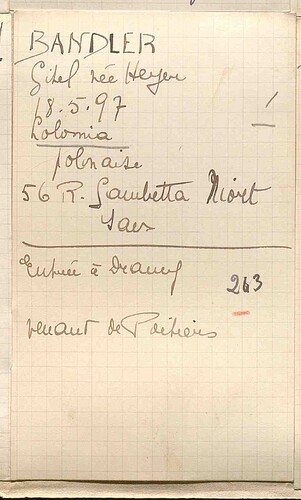 BANDLER
Gitel née Heyer
18.5.97
Kolomia
polonaise
56 R. Gambetta Niort
Entrée à Drancy
263
venant de Poitiers